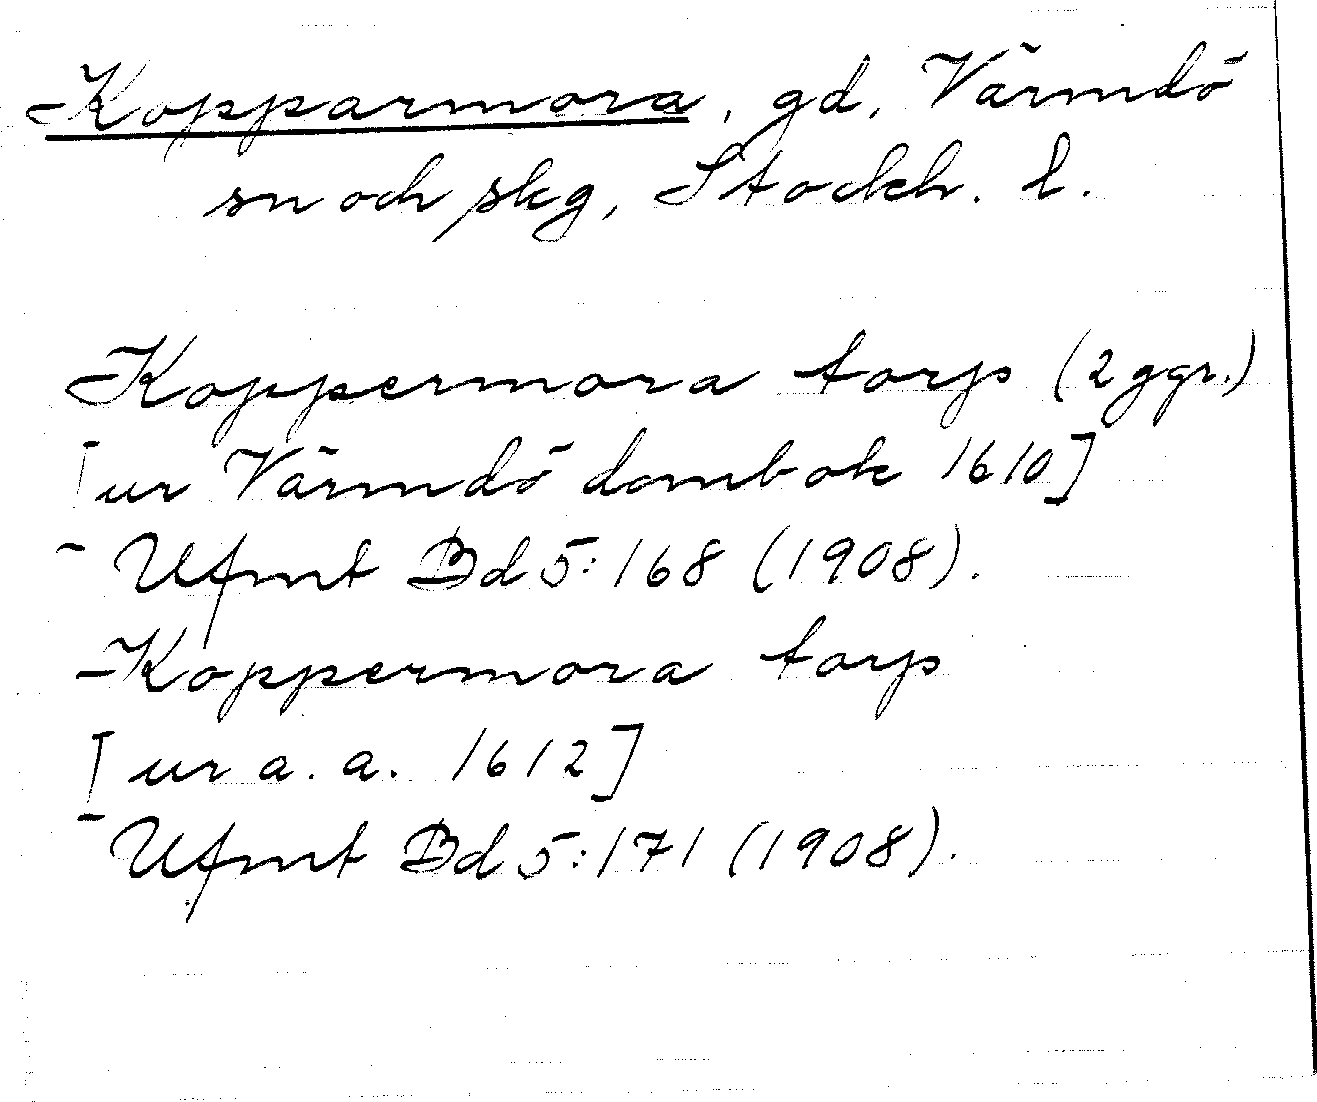 Kopparmora, gd, Värmdö
sn och skg, Stockh. l.
Koppermora torp (2 ggr.)
[ur Värmdö dombok 1610]
Ufmt Bd 5:168 (1908).
Koppermora torp
[ur a. a. 1612]
Ufmt Bd 5:171 (1908).